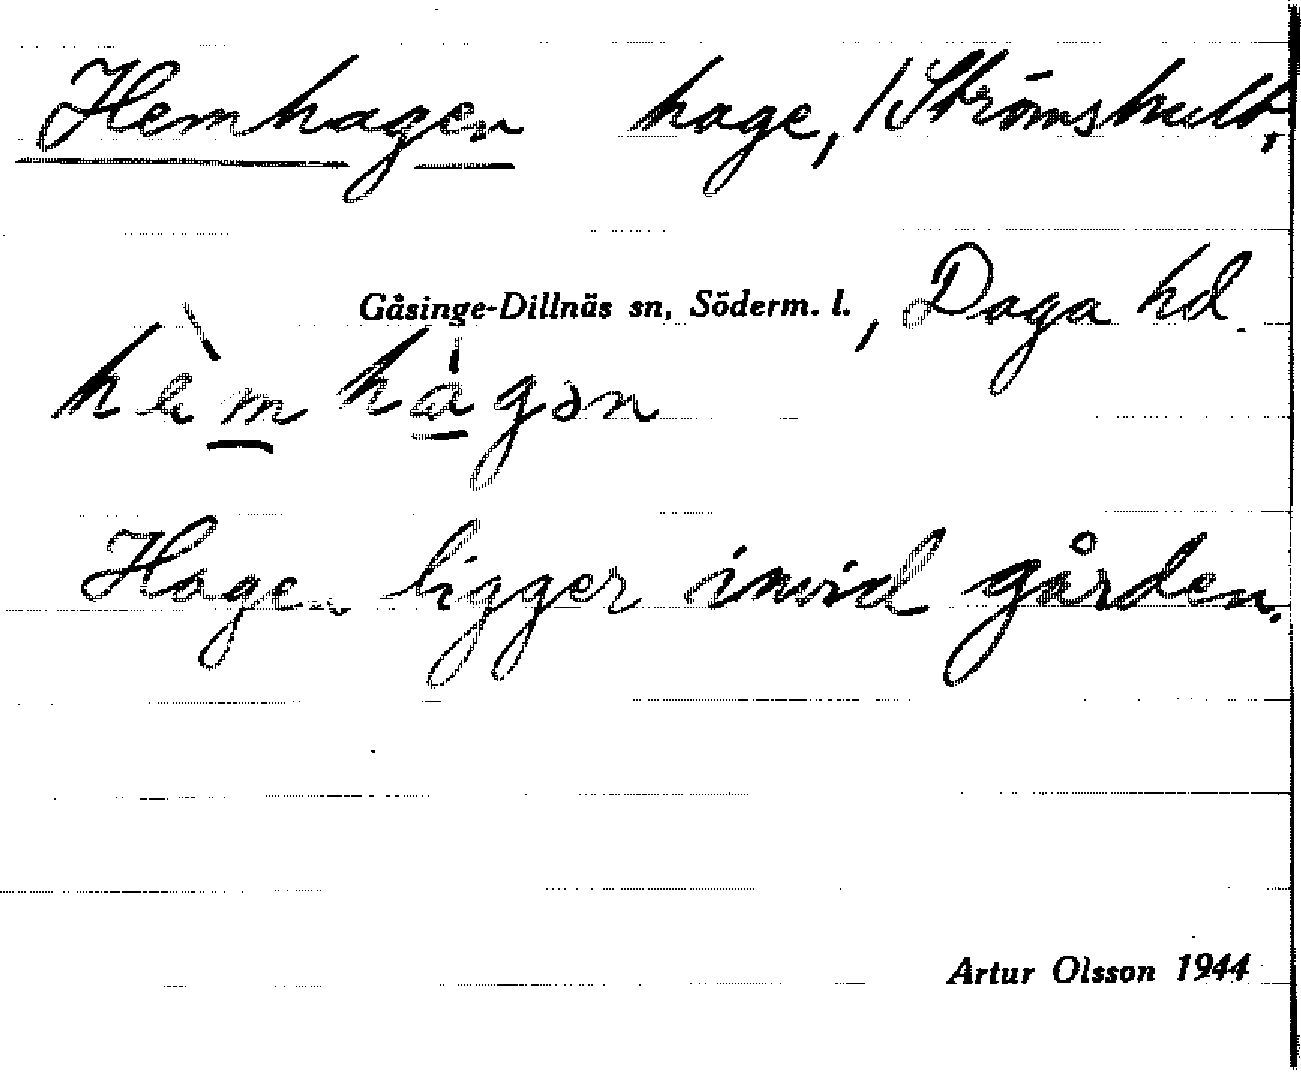 Hemhagen hage, /Strömshult,
Gåsinge-Dillnäs sn, Söderm. l., Daga hd.
hèmhágən
Hagen ligger invid gården.
Artur Olsson 1944